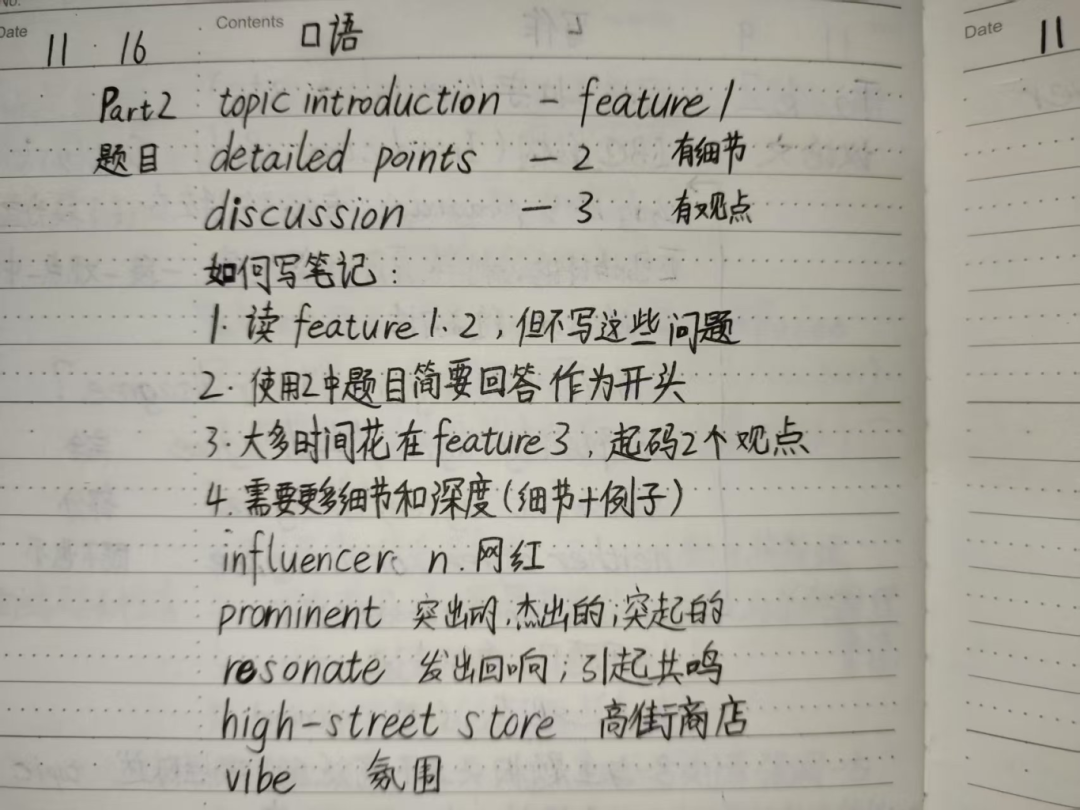 No.
Date 11 16 Contents 口语
Part2 topic introduction - feature 1
题目 detailed points - 2 有细节
discussion - 3 有观点
如何写笔记:
1. 读 feature 1. 2, 但不写这些问题
2. 使用2中题目简要回答作为开头
3. 大多时间花在 feature 3, 起码2个观点
4. 需要更多细节和深度(细节+例子)
influencer n. 网红
prominent 突出的,杰出的;突起的
resonate 发出回响;引起共鸣
high-street store 高街商店
vibe 氛围
Date 11